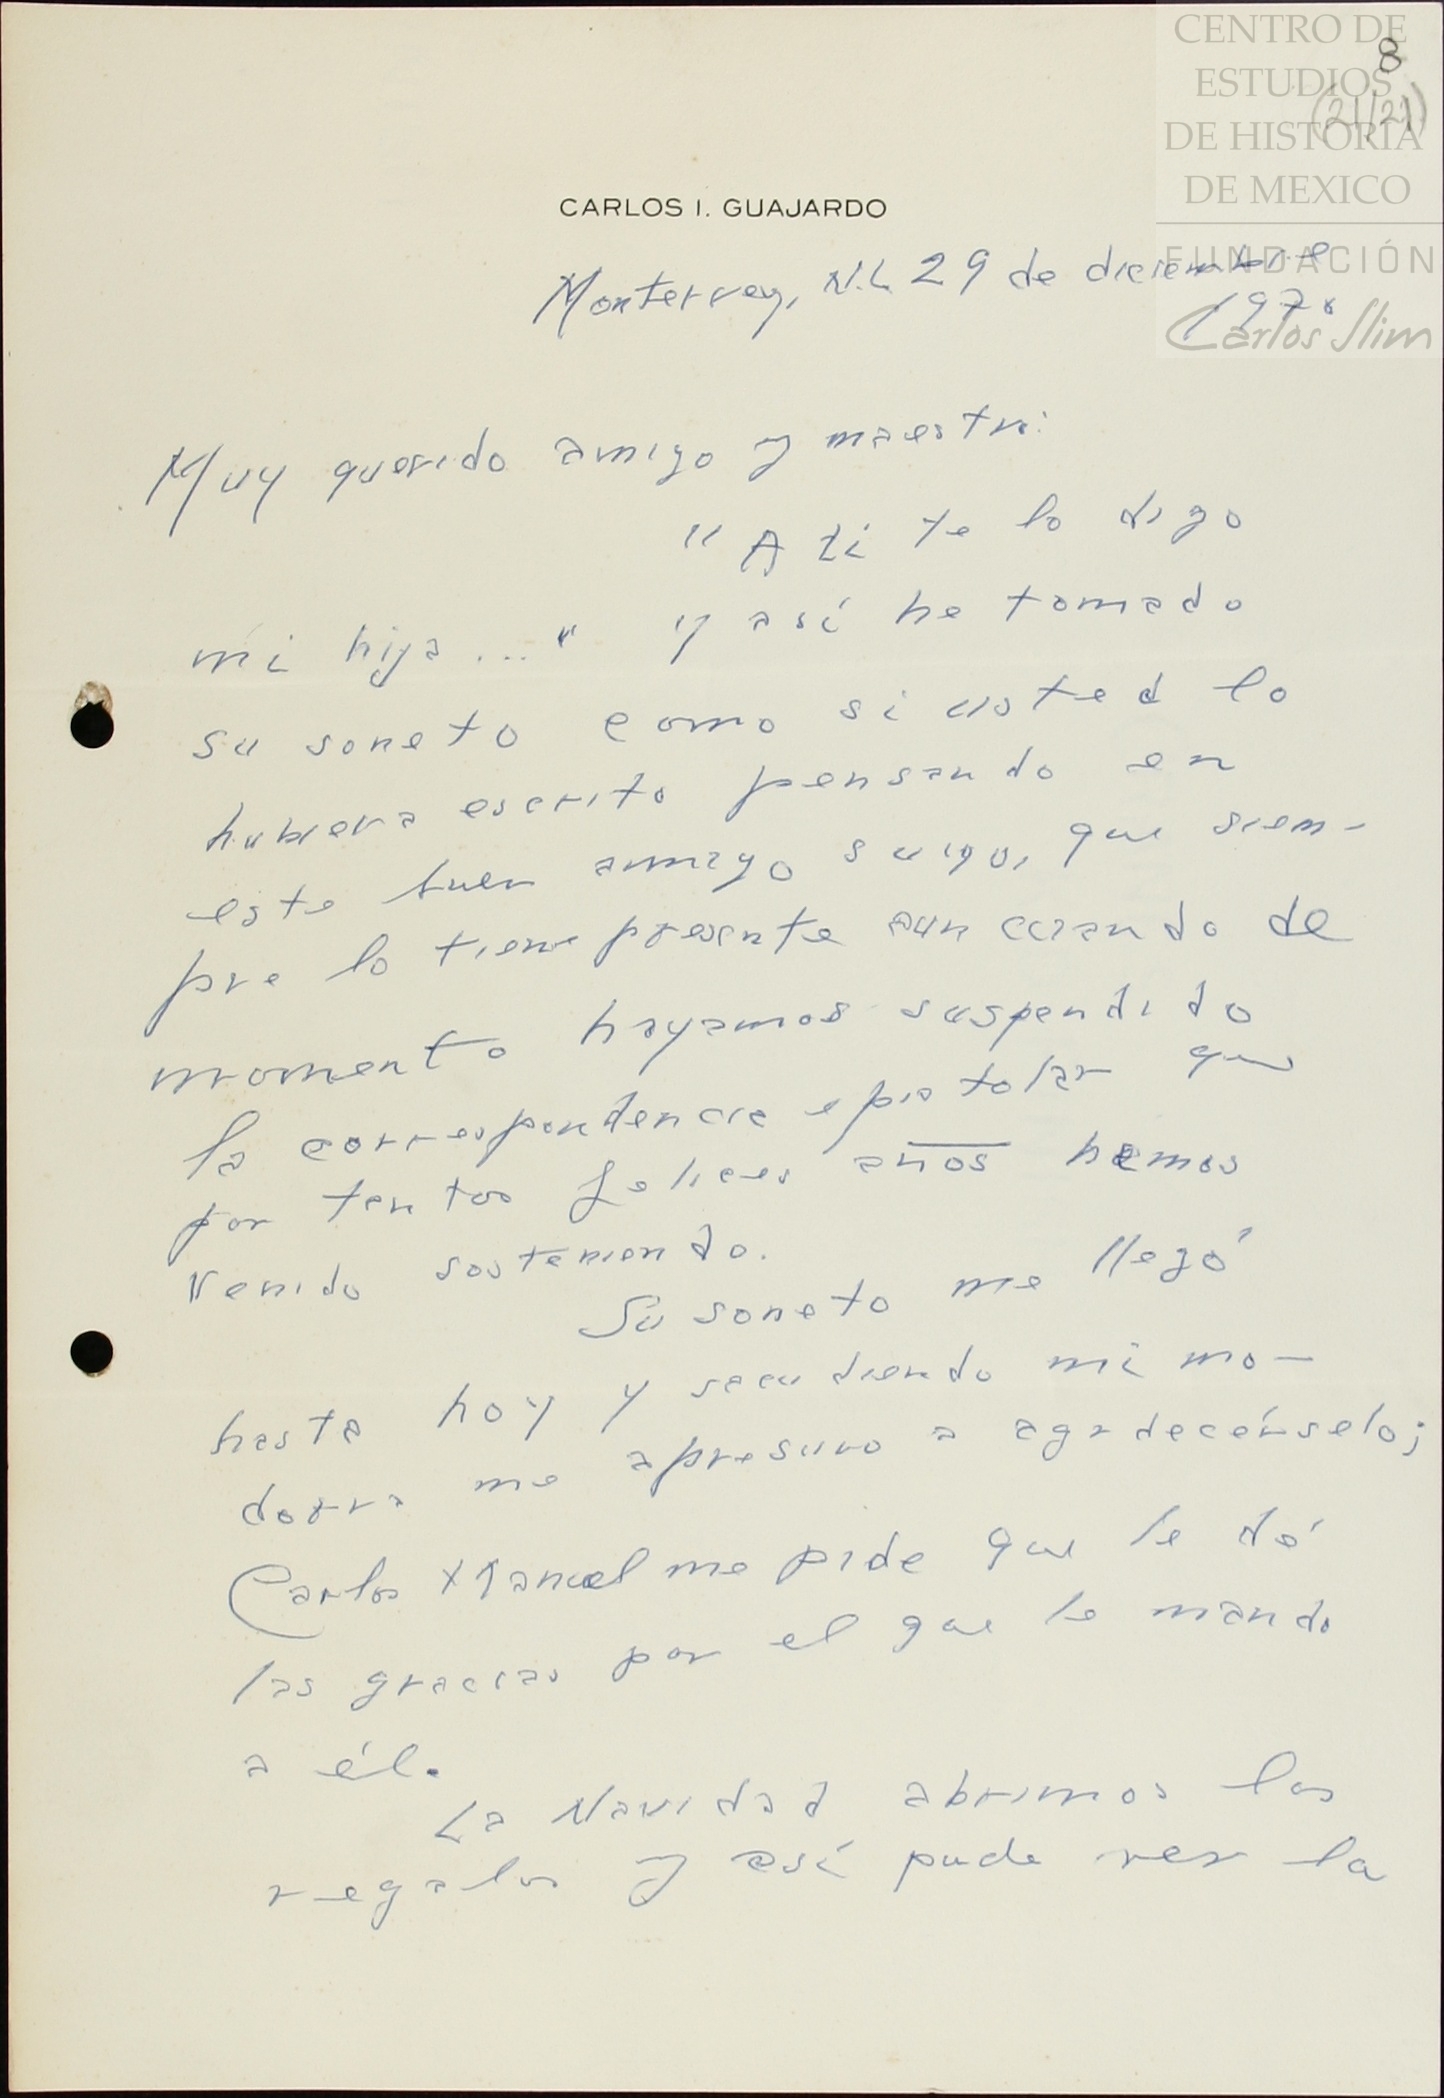 CENTRO DE
ESTUDIOS
DE HISTORIA
DE MEXICO
FUNDACIÓN
Carlos Slim
8
(21/21)
CARLOS I. GUAJARDO
Monterrey, N.L. 29 de diciembre
Muy querido amigo y maestro:
"A ti te lo digo
mi hija ..." y así he tomado
su soneto como si usted lo
hubiera escrito pensando en
este buen amigo suyo, que siem-
pre lo tiene presente aun cuando de
momento hayamos suspendido
la correspondencia epistolar que
por tantos felices años hemos
venido sosteniendo.
Su soneto me llegó
hasta hoy y sacudiendo mi mo-
dorra me apresuro a agradecérselo;
Carlos Manuel me pide que le dé
las gracias por el que le mando
a él.
La Navidad abrimos los
regalos y así pude ver la